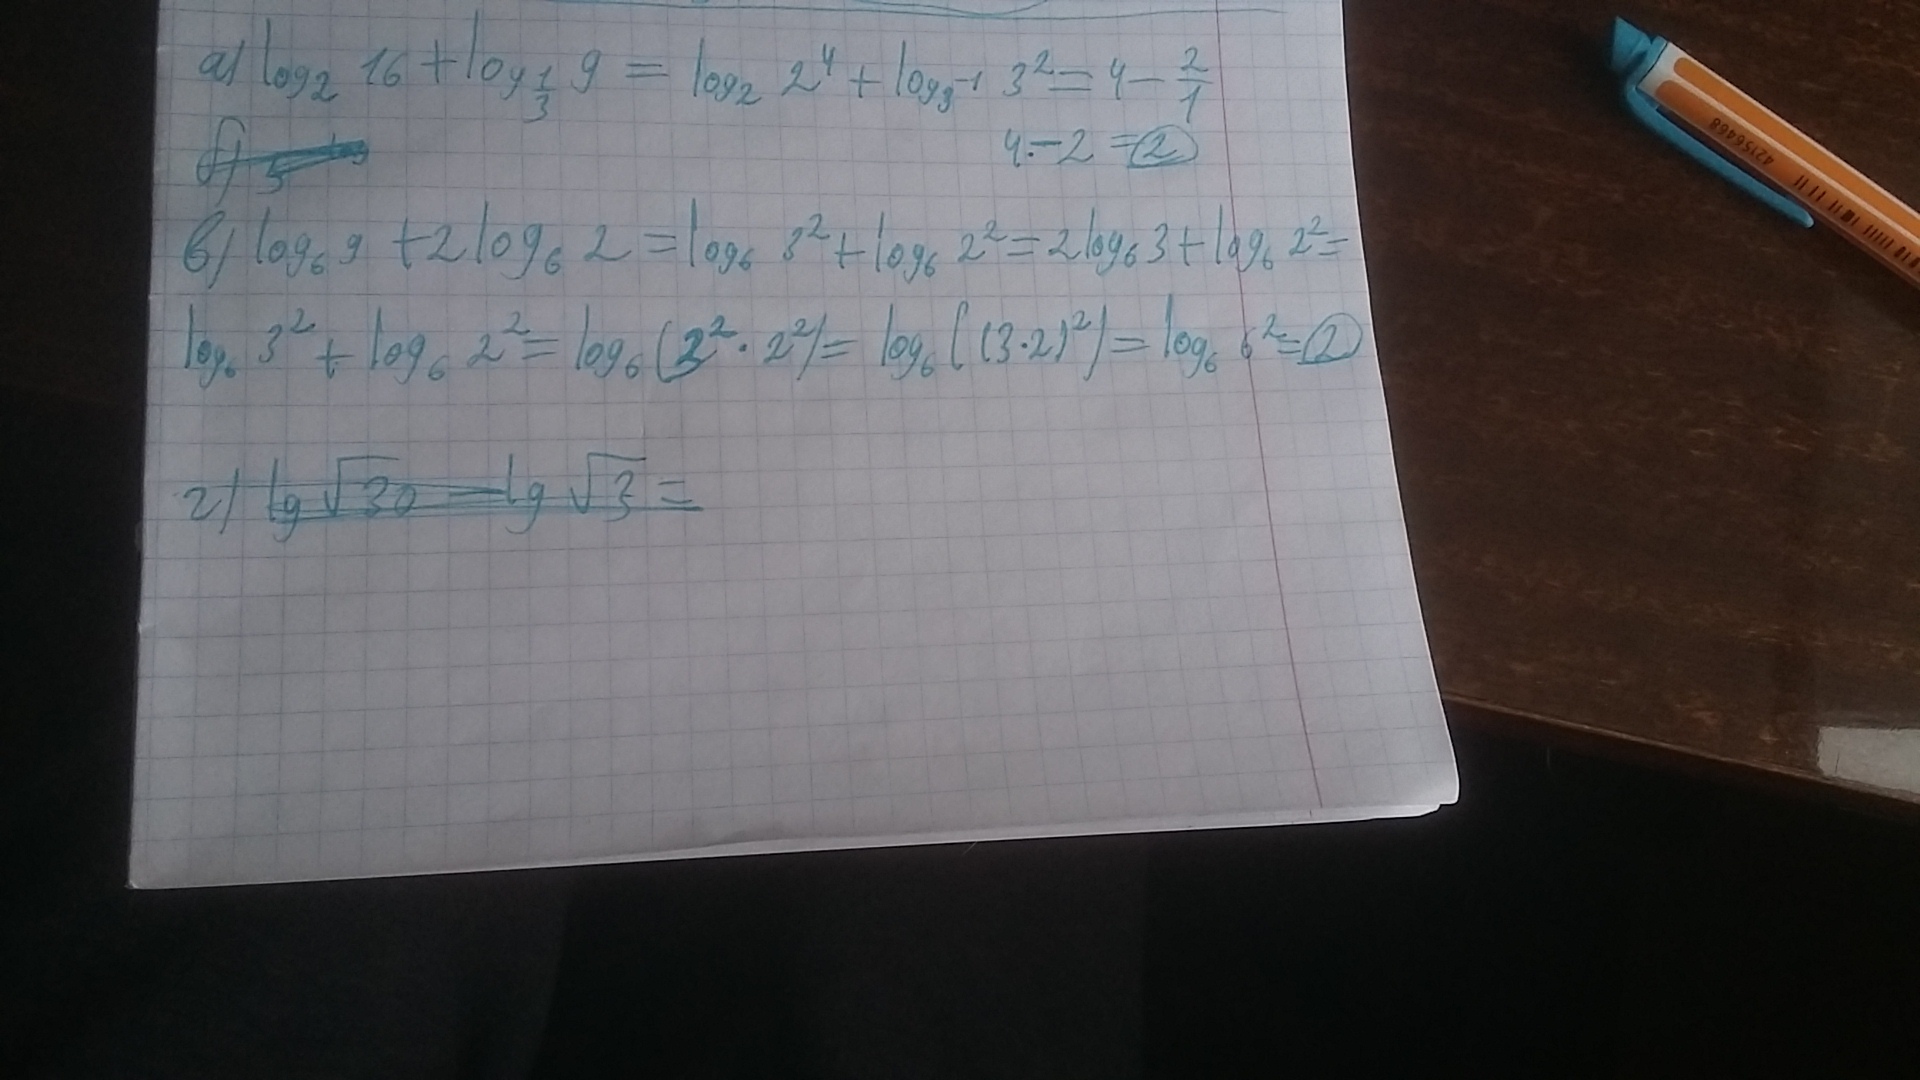 а) log₂ 16 + log_{1/3} 9 = log₂ 2⁴ + log_{3⁻¹} 3² = 4 - 2/1
4 - 2 = 2
б) 5
в) log₆ 9 + 2 log₆ 2 = log₆ 3² + log₆ 2² = 2 log₆ 3 + log₆ 2² =
log₆ 3² + log₆ 2² = log₆ (3² · 2²) = log₆ ((3·2)²) = log₆ 6² = 2
г) lg √30 - lg √3 =
42156468